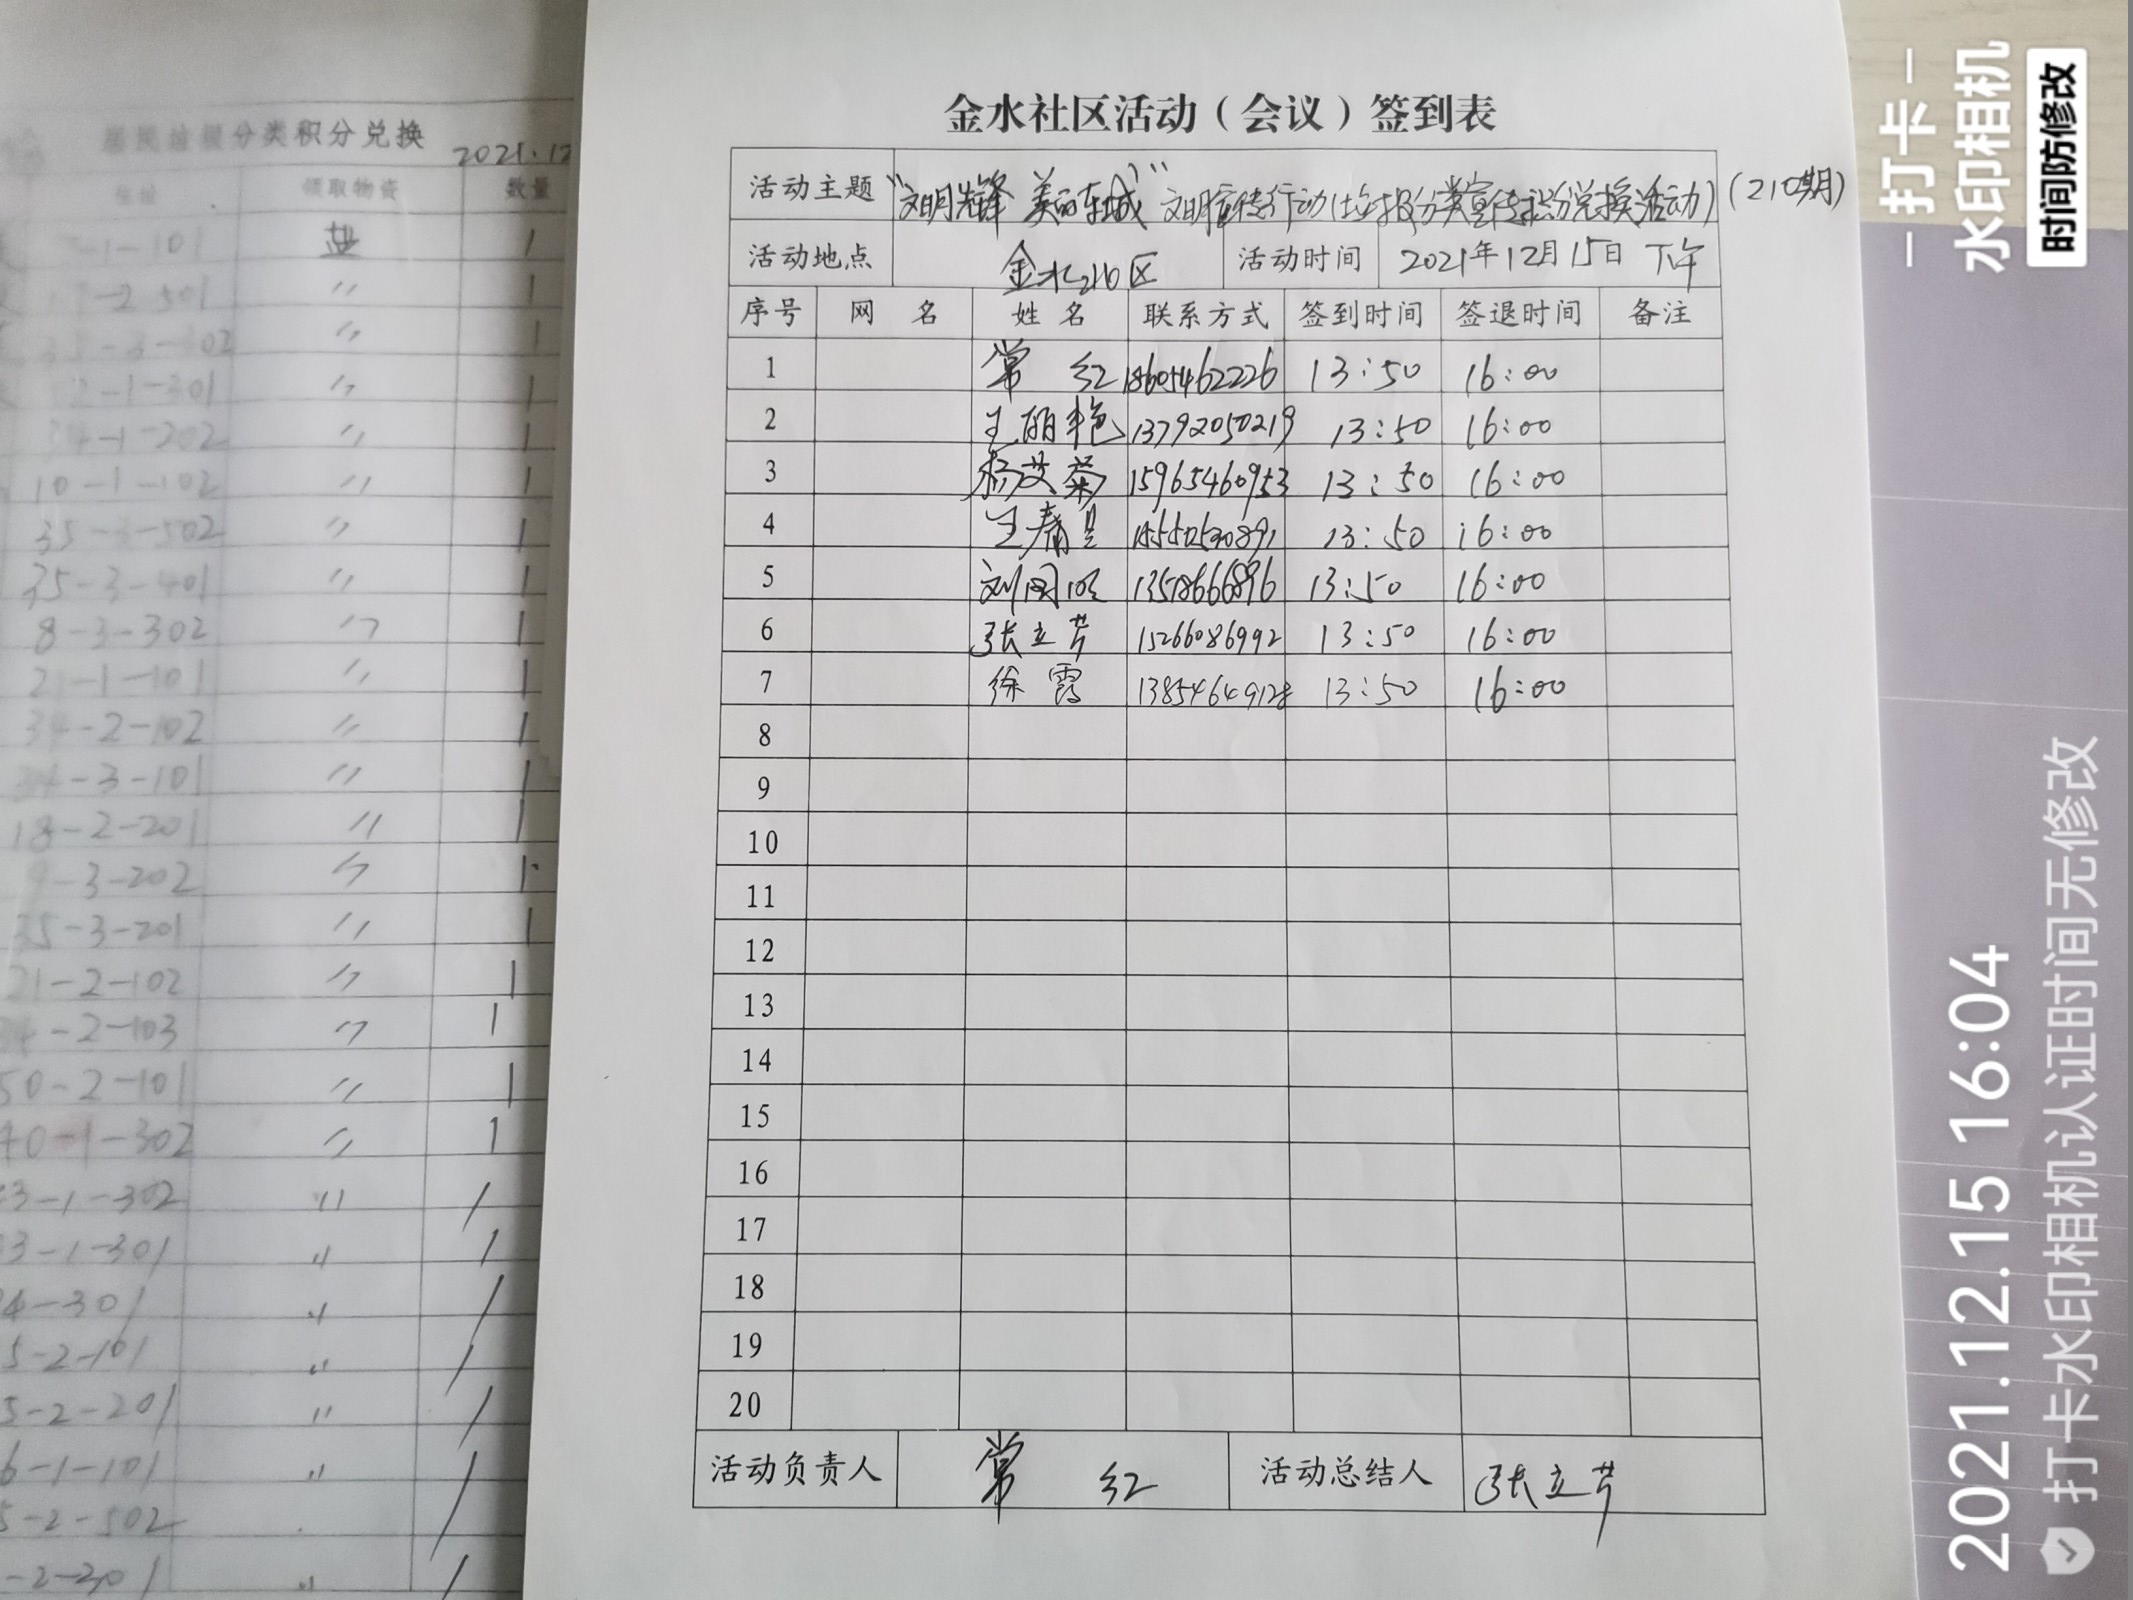 居民垃圾分类积分兑换
2021.12
住址 领取物资 数量
-1-101 盐 1
-2 501 〃 1
35-3-302 〃 1
2-1-301 〃 1
34-1-202 〃 1
10-1-102 〃 1
35-3-502 〃 1
35-3-401 〃 1
8-3-302 〃 1
21-1-101 〃 1
34-2-102 〃 1
34-3-101 〃 1
18-2-201 〃 1
9-3-202 〃 1
35-3-201 〃 1
21-2-102 〃 1
34-2-103 〃 1
50-2-101 〃 1
40-1-302 〃 1
3-1-302 〃 1
3-1-301 〃 1
4-301 〃 1
5-2-101 〃 1
5-2-201 〃 1
6-1-101 〃 1
5-2-502 1
-2-201 〃 1
金水社区活动（会议）签到表
活动主题 “文明先锋 美丽东城” 文明宣传行动(垃圾分类宣传积分兑换活动)(210期)
活动地点 金水小区 活动时间 2021年12月15日 下午
序号 网 名 姓 名 联系方式 签到时间 签退时间 备注
1 常 红 18605462226 13:50 16:00
2 王丽艳 13792050219 13:50 16:00
3 杨艾菊 15965460953 13:50 16:00
4 王 13:50 16:00
5 刘国 13:50 16:00
6 张立芳 15266086992 13:50 16:00
7 徐霞 13854649128 13:50 16:00
8
9
10
11
12
13
14
15
16
17
18
19
20
活动负责人 常 红 活动总结人 张立芳
打卡
水印相机
时间防修改
2021.12.15 16:04
打卡水印相机认证时间无修改